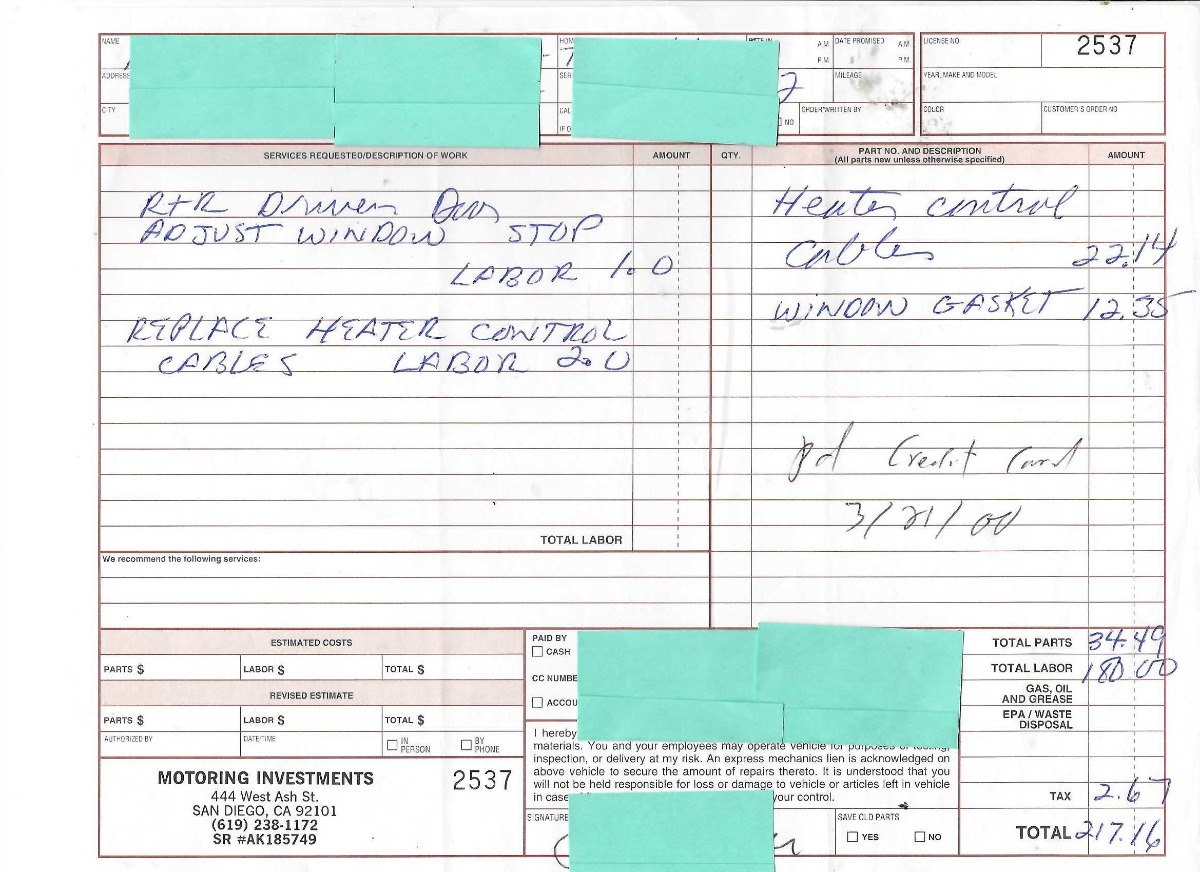 NAME
HOM
A.M.
P.M.
DATE PROMISED A.M.
P.M.
LICENSE NO.
2537
ADDRESS
SER
MILEAGE
YEAR, MAKE AND MODEL
CITY
CAL
IF O
NO
ORDER WRITTEN BY
COLOR
CUSTOMER'S ORDER NO
SERVICES REQUESTED/DESCRIPTION OF WORK
AMOUNT
QTY.
PART NO. AND DESCRIPTION
(All parts new unless otherwise specified)
AMOUNT
R+R Driver Door
ADJUST WINDOW STOP
LABOR 1.0
REPLACE HEATER CONTROL
CABLES LABOR 2.0
Heater control
Cables 22.14
WINDOW GASKET 12.35
pd Credit Card
3/21/00
TOTAL LABOR
We recommend the following services:
ESTIMATED COSTS
PARTS $ LABOR $ TOTAL $
REVISED ESTIMATE
PARTS $ LABOR $ TOTAL $
AUTHORIZED BY DATE/TIME IN PERSON BY PHONE
MOTORING INVESTMENTS
444 West Ash St.
SAN DIEGO, CA 92101
(619) 238-1172
SR #AK185749
2537
PAID BY
CASH
CC NUMBE
ACCOU
I hereby
materials. You and your employees may operate vehicle for purposes of testing,
inspection, or delivery at my risk. An express mechanics lien is acknowledged on
above vehicle to secure the amount of repairs thereto. It is understood that you
will not be held responsible for loss or damage to vehicle or articles left in vehicle
in case your control.
SIGNATURE
SAVE OLD PARTS
YES NO
TOTAL PARTS 34.49
TOTAL LABOR 180.00
GAS, OIL
AND GREASE
EPA / WASTE
DISPOSAL
TAX 2.67
TOTAL 217.16